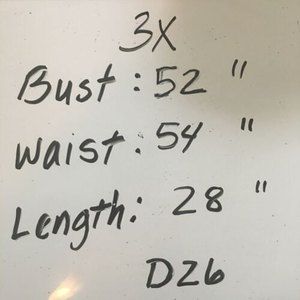 3X
Bust: 52 "
Waist: 54 "
Length: 28 "
D26